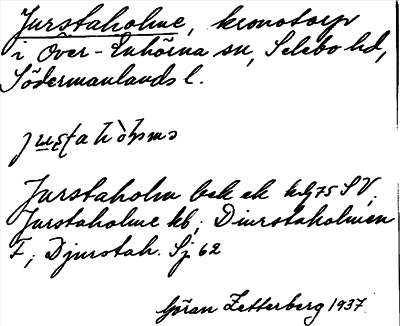 Jurstaholme, kronotorp
i Över-Enhörna sn, Selebo hd,
Södermanlands l.
Jurstaholm bek ek
SV;
Jurstaholme kb; Diurstaholmen
F; Djurstah. Sj 62
Göran Zetterberg 1937.